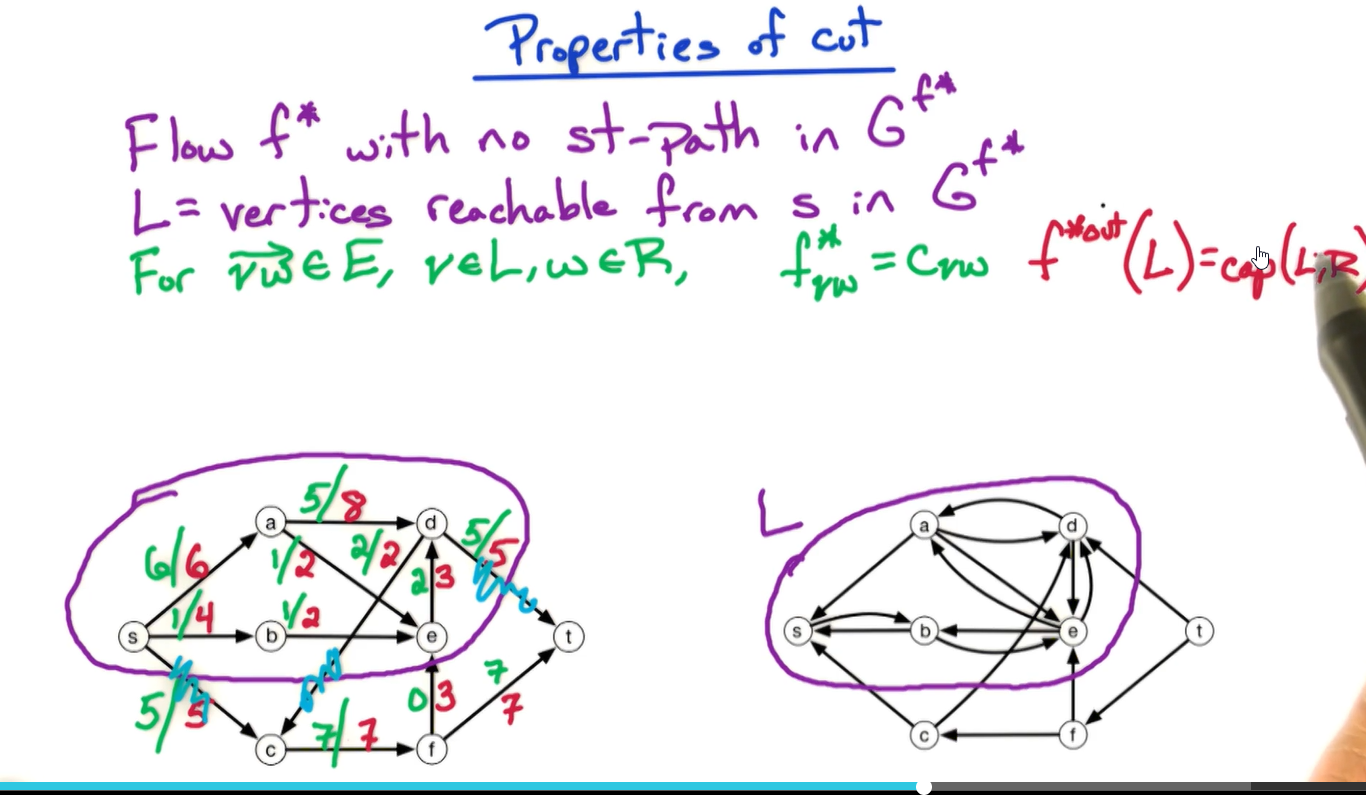 Properties of cut
Flow f* with no st-path in G^f*
L = vertices reachable from s in G^f*
For vw ∈ E, v ∈ L, w ∈ R, f*vw = Cvw f*out(L) = cap(L,R)
5/8
a
d
6/6
1/2
2/2
5/5
2 3
1/4
1/2
s
b
e
t
5/5
0 3
7
7
7/7
c
f
L
a
d
s
b
e
t
c
f